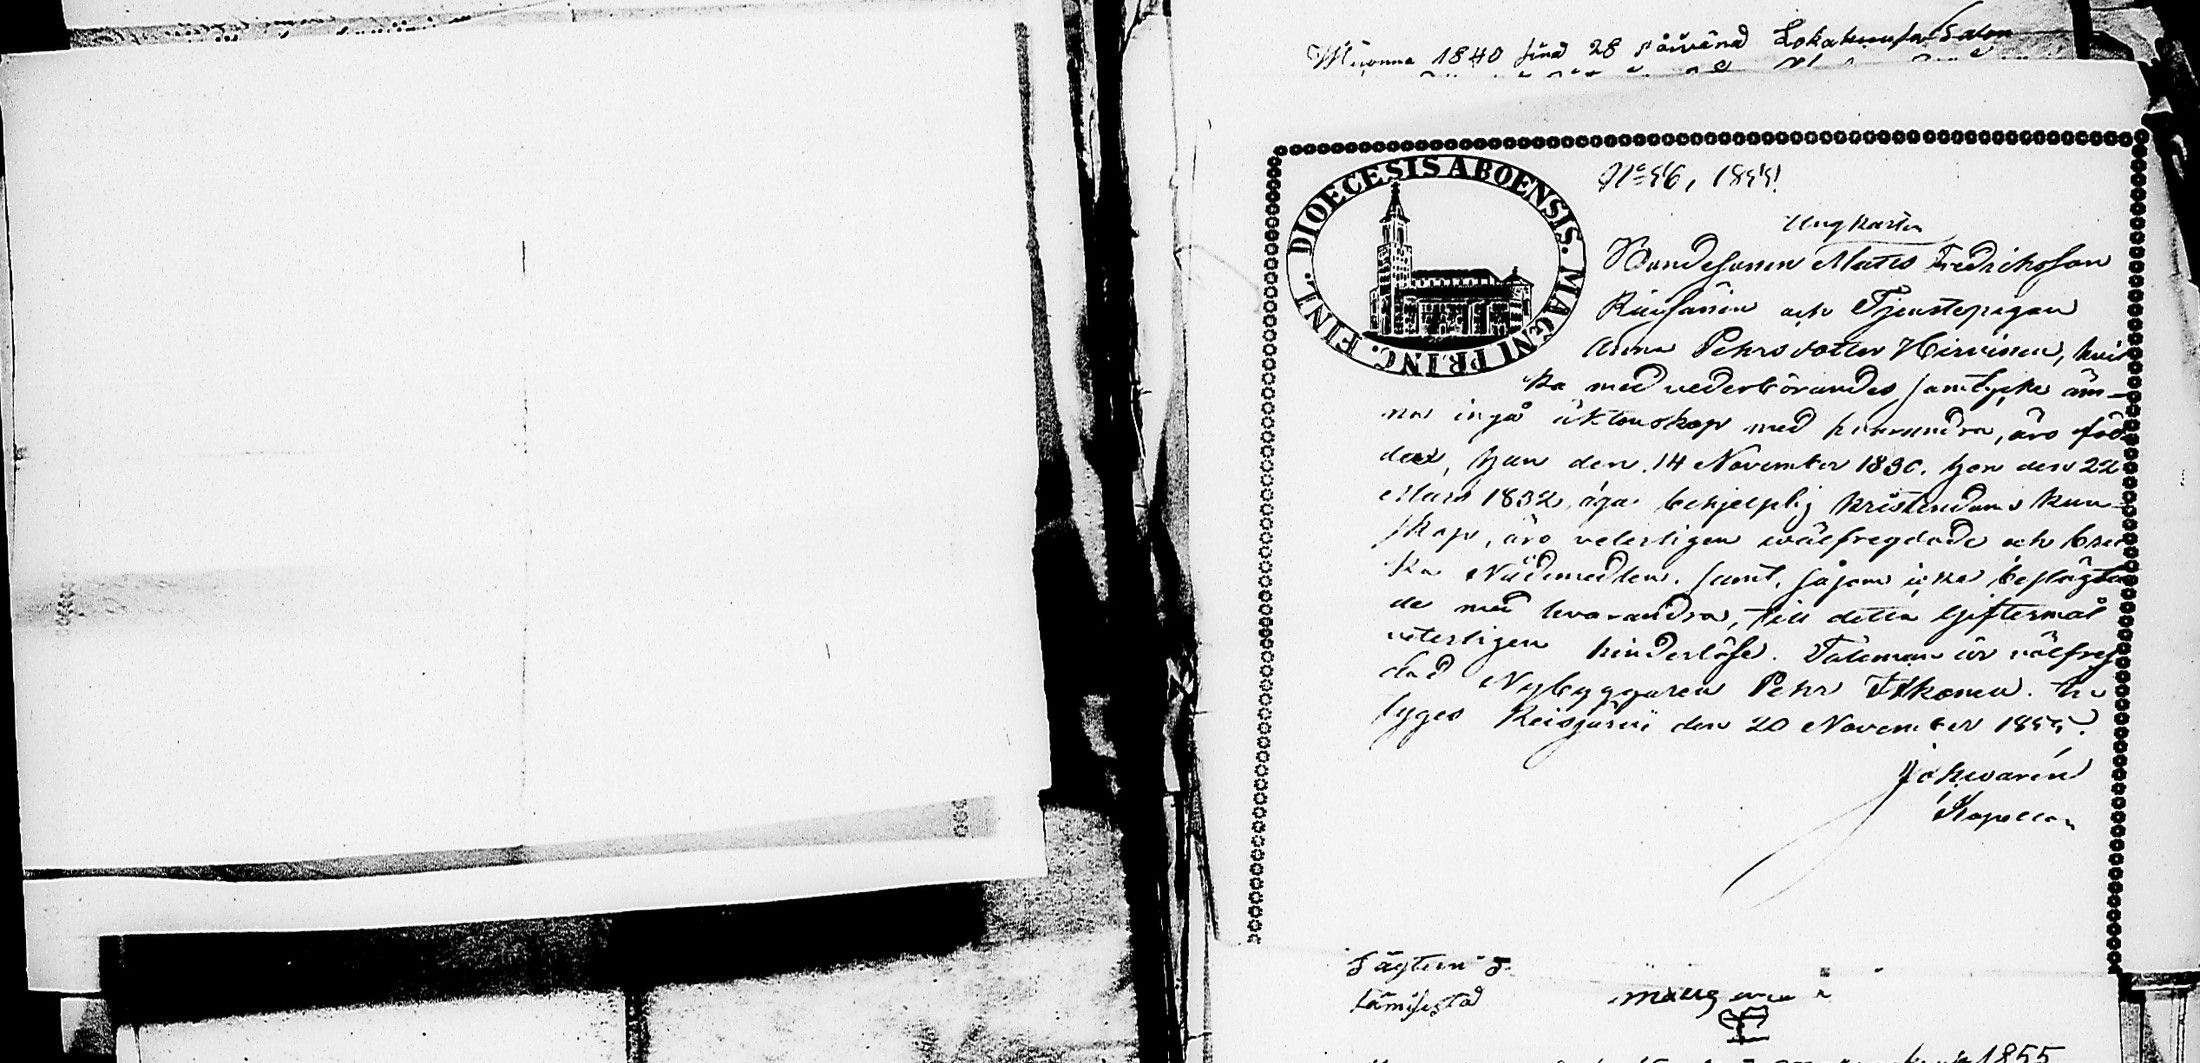 Wuonna 1840 sinä 28 päivänä Lokakuusa Salon
DIOECESIS ABOENSIS. MAGNI PRINC. FINL.
N:o 56, 1855.
Ungkarlen
Bondesonen Matts Fredriksson
och Tjenstepigan
Anna Pehrsdotter Hirvinen, hvil
ka med vederbörandes samtycke äm-
na ingå äktenskap med hvarandra, äro föd
de, han den 14 November 1830. hon den 22
Mars 1832, äga behjelplig kristendoms kun
skap, äro veterligen wälfregdade och bru
ka Nådemedlen, samt, såsom icke beslägta
de med hvarandra, till detta Giftermål
veterligen hinderlöse. Taleman är välfrej
dad Nybyggaren Pehr Itkonen. Be
tyges Reisjärvi den 20 November 1855.
Kapellan
1855